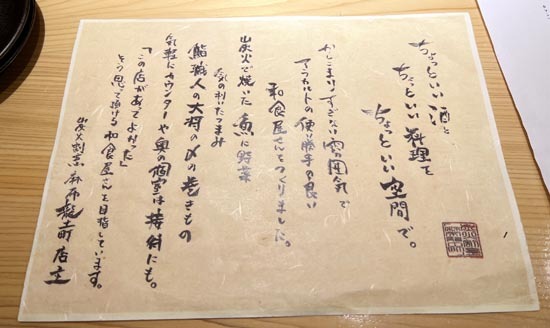 ちょっといい酒と
ちょっといい料理を
ちょっといい空間で。
かしこまりすぎない雰囲気で
アラカルトの使い勝手の良い
和食屋さんをつくりました。
炭火で焼いた魚に野菜
気の利いたつまみ
鮨職人の大将の〆の巻きもの
気軽にカウンターや奥の個室は接待にも。
「この店があってよかった」
そう思って頂ける和食屋さんを目指しています。
炭火割烹 麻布龍土町 店主